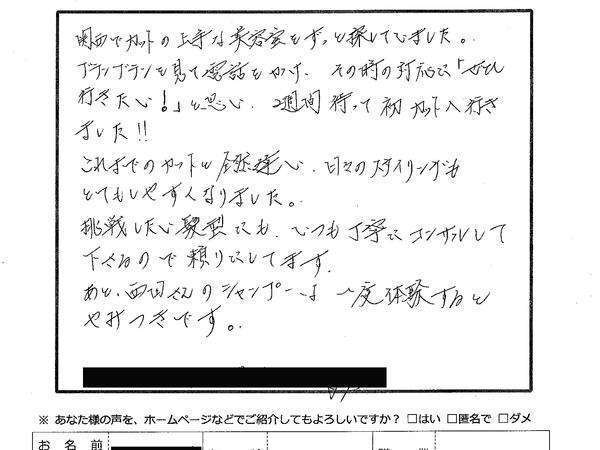 関西でカットの上手な美容室をずっと探していました。
ブランブランを見て電話をかけ、その時の対応に「ぜひ
行きたい!」と思い、2週間待って初カットへ行き
ました!!
これまでのカットと全然違い、日々のスタイリングも
とてもしやすくなりました。
挑戦したい髪型にも、いつも丁寧にコンサルして
下さるので頼りにしてます。
あと、西田さんのシャンプーは一度体験すると
やみつきです。
※ あなた様の声を、ホームページなどでご紹介してもよろしいですか? □はい □匿名で □ダメ
お 名 前